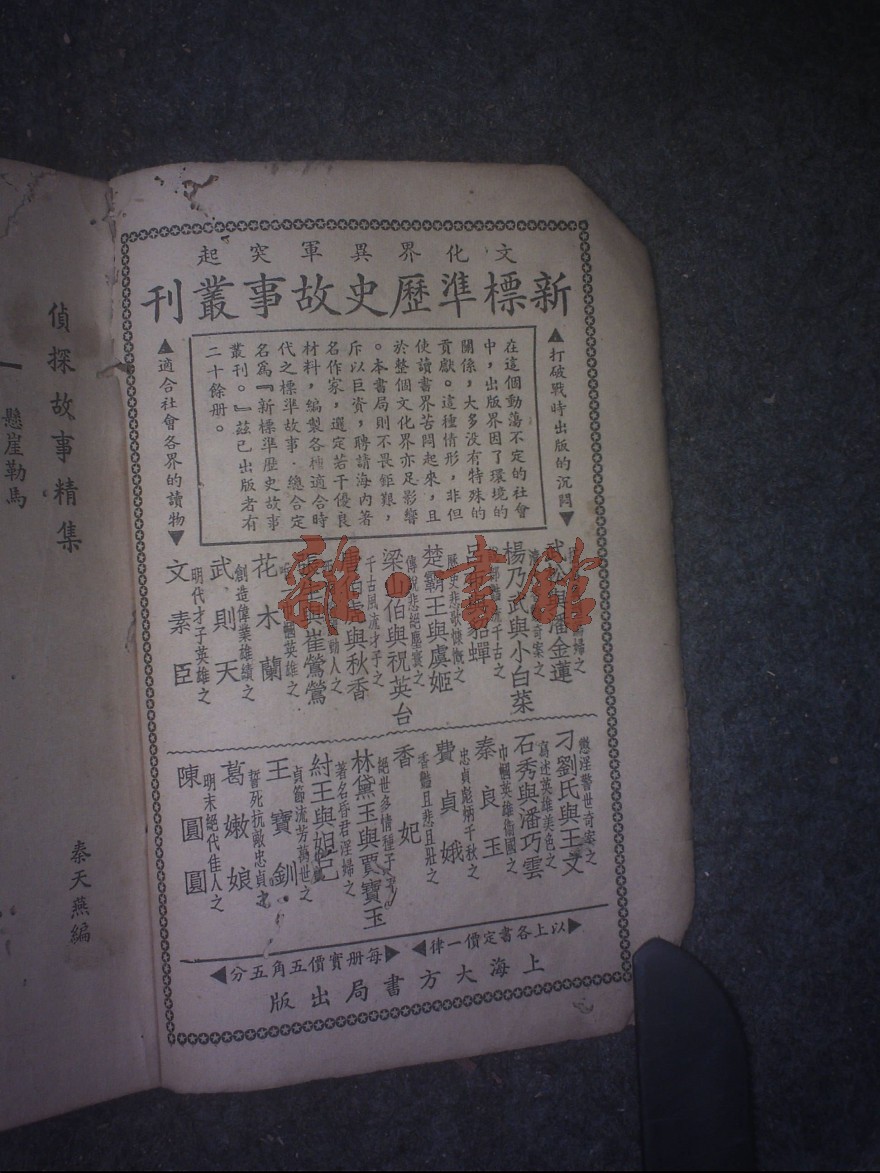 文化界異軍突起
新標準歷史故事叢刊
▲打破戰時出版的沉悶▼
在這個動蕩不定的社會
中，出版界因了環境的
關係，大多没有特殊的
貢獻。這種情形，非但
使讀書界苦悶起來，且
於整個文化界亦足影響
。本書局則不畏鉅艱，
斥以巨資，聘請海內著
名作家，選定若干優良
材料，編製各種適合時
代之標準故事．總合定
名爲『新標準歷史故事
叢刊。』茲已出版者有
二十餘册。
▲適合社會各界的讀物▼
武松與潘金蓮
楊乃武與小白菜
呂布與貂蟬
歷史悲歌慷慨之
楚霸王與虞姬
傳說悲絕塵寰之
梁山伯與祝英台
千古風流才子之
唐伯虎與秋香
張生與崔鶯鶯
花木蘭
創造偉業雄績之
武則天
明代才子英雄之
文素臣
懲淫警世奇案之
刁劉氏與王文
寫述英雄美色之
石秀與潘巧雲
巾幗英雄衛國之
秦良玉
忠貞彪炳千秋之
費貞娥
香豔且悲且壯之
香妃
絕世多情種子之
林黛玉與賈寶玉
著名昏君淫婦之
紂王與妲己
貞節流芳萬世之
王寶釧
誓死抗敵忠貞之
葛嫩娘
明末絕代佳人之
陳圓圓
▶以上各書定價一律◀
▶每册實價五角五分◀
上海大方書局出版
偵探故事精集
懸崖勒馬
秦天燕編
雜·書館